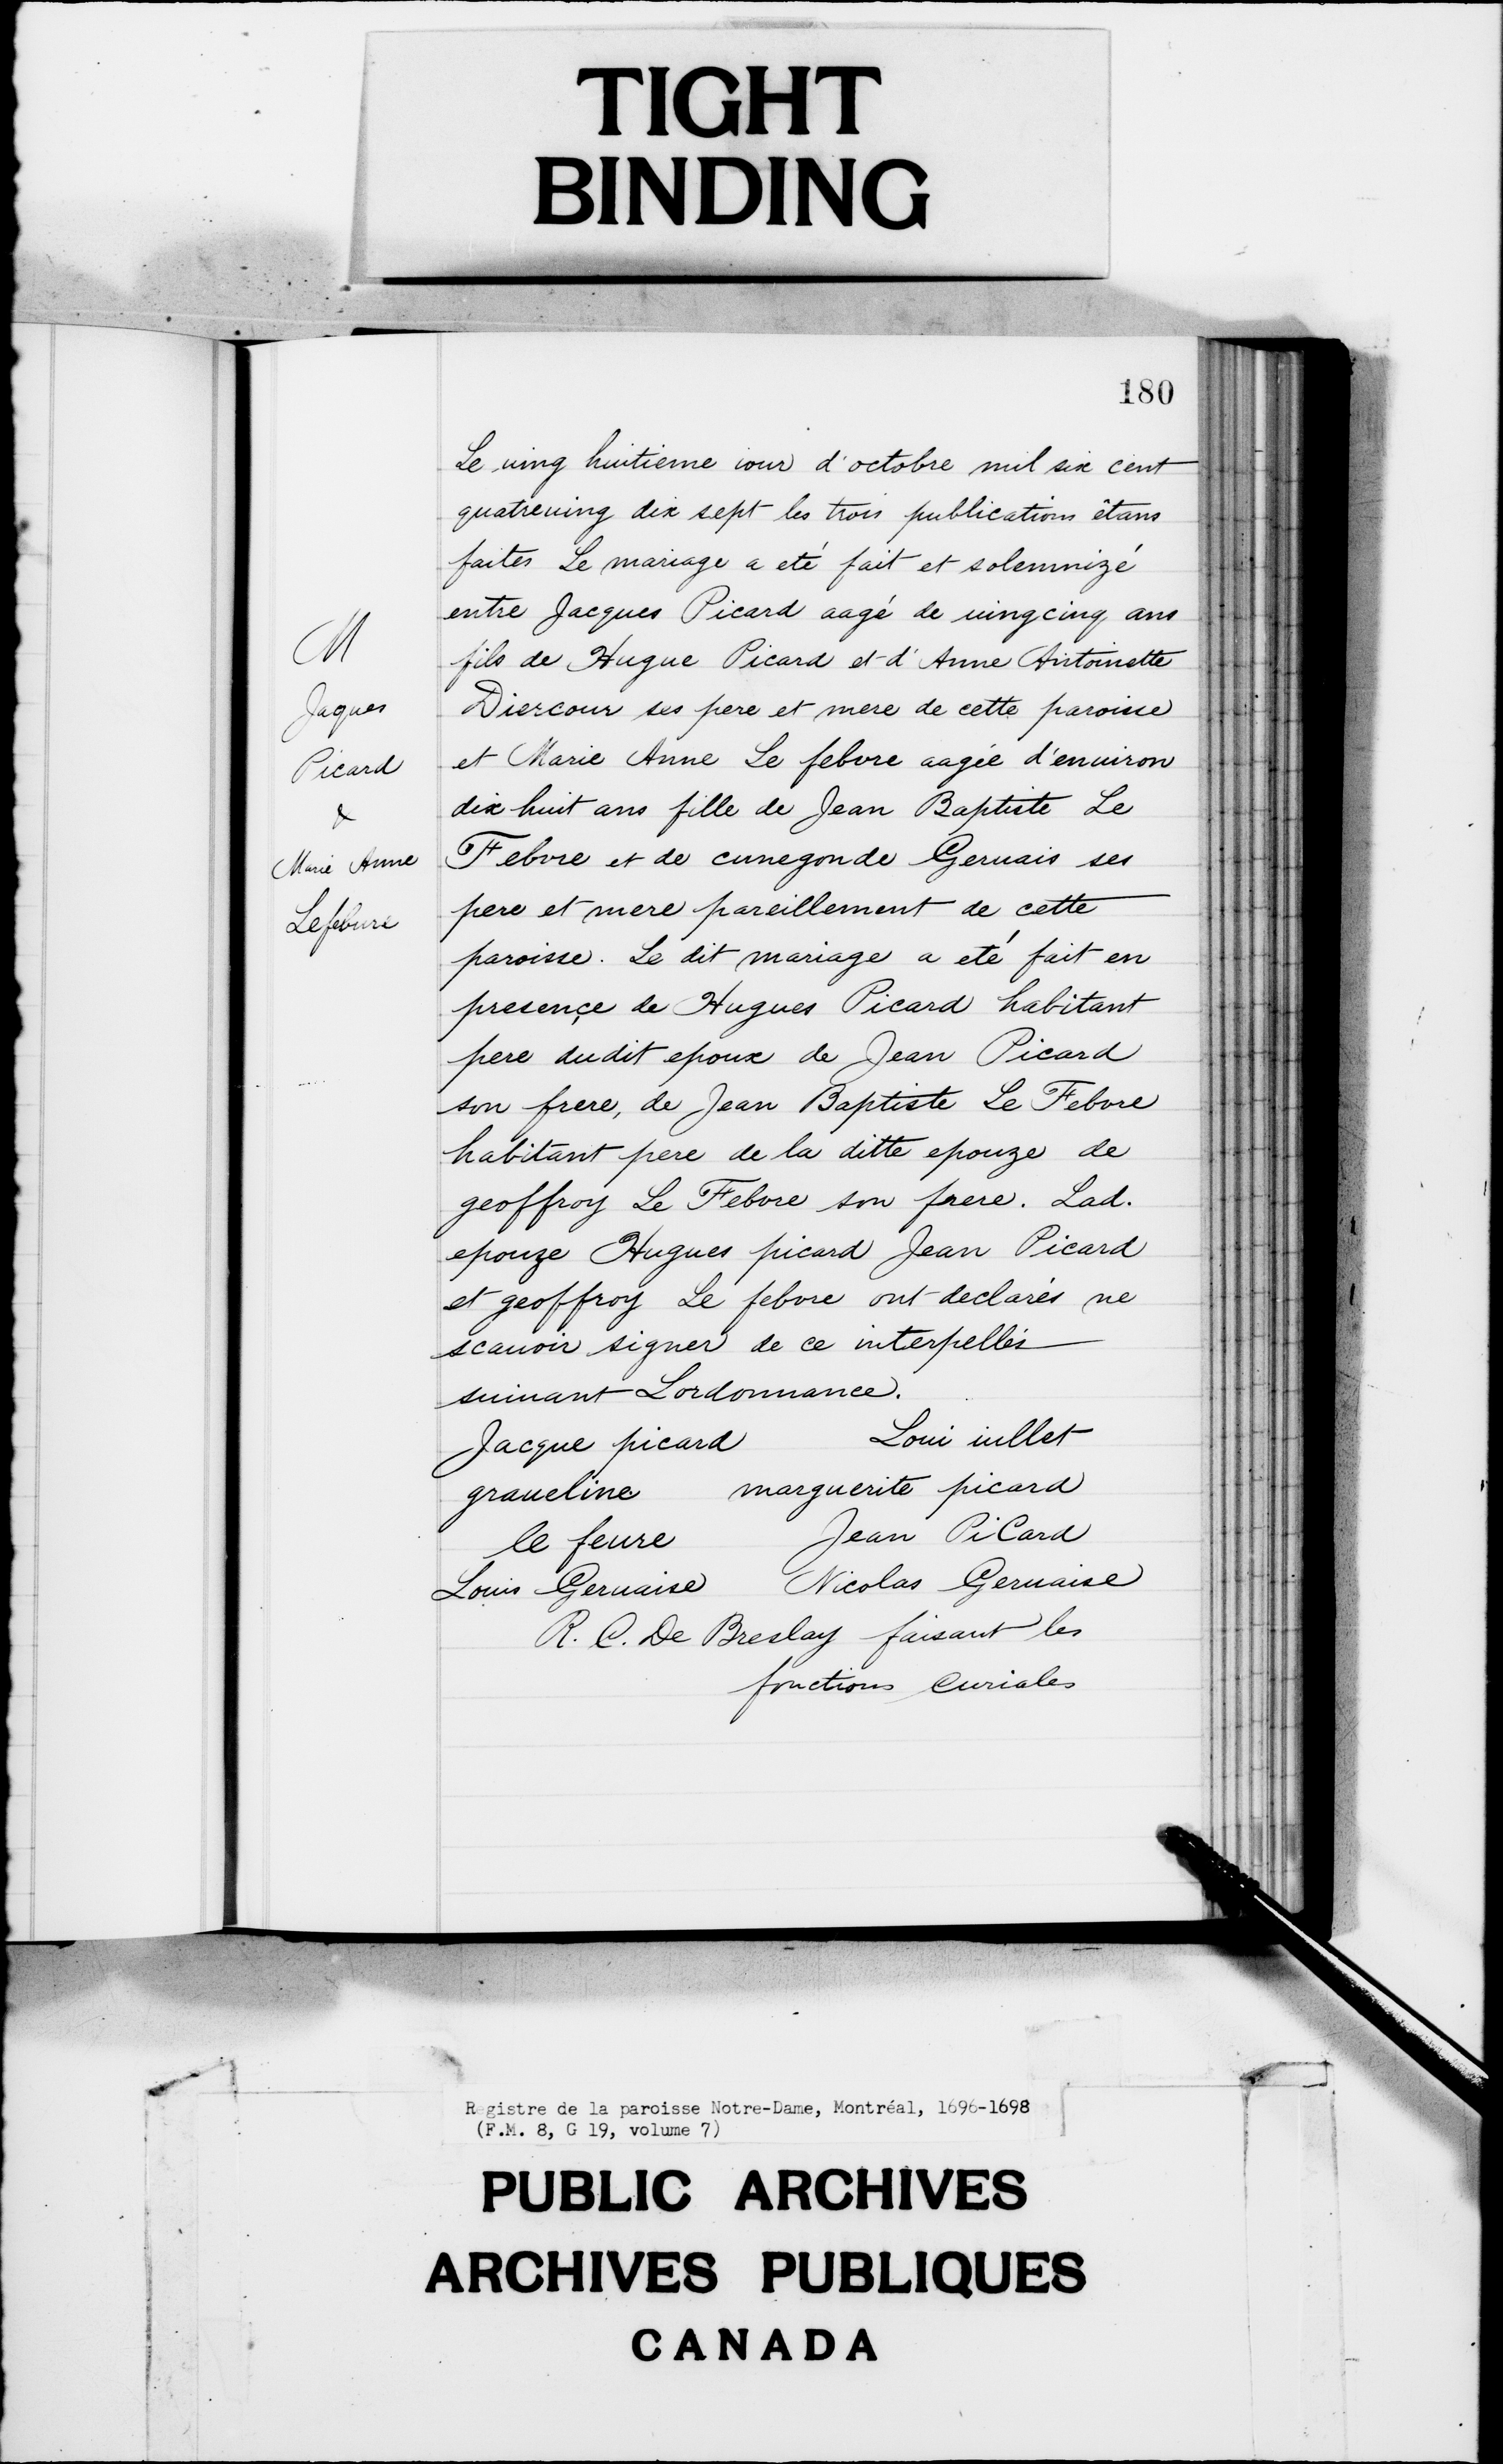 TIGHT
BINDING
180
Le uing huitieme iour d'octobre mil six cent
quatreuing dix sept les trois publications êtans
faites Le mariage a eté fait et solemnizé
entre Jacques Picard aagé de uingcinq ans
fils de Hugue Picard et d'Anne Antoinette
Diercour ses pere et mere de cette paroisse
et Marie Anne Le febvre aagée d'enuiron
dix huit ans fille de Jean Baptiste Le
Febvre et de cunegonde Geruais ses
pere et mere pareillement de cette
paroisse. Le dit mariage a eté fait en
presençe de Hugues Picard habitant
pere dudit epoux de Jean Picard
son frere, de Jean Baptiste Le Febvre
habitant pere de la ditte epouze de
geoffroy Le Febvre son frere. Lad.
epouze Hugues picard Jean Picard
et geoffroy Le febvre ont declarés ne
scauoir signer de ce interpellés
suiuant Lordonnance.
Jacque picard Loui iullet
graueline marguerite picard
le feure Jean PiCard
Louis Geruaise Nicolas Geruaise
R. C. De Breslay faisant les
fonctions Curiales
M
Jaques
Picard
&
Marie Anne
Lefebure
Registre de la paroisse Notre-Dame, Montréal, 1696-1698
(F.M. 8, G 19, volume 7)
PUBLIC ARCHIVES
ARCHIVES PUBLIQUES
CANADA